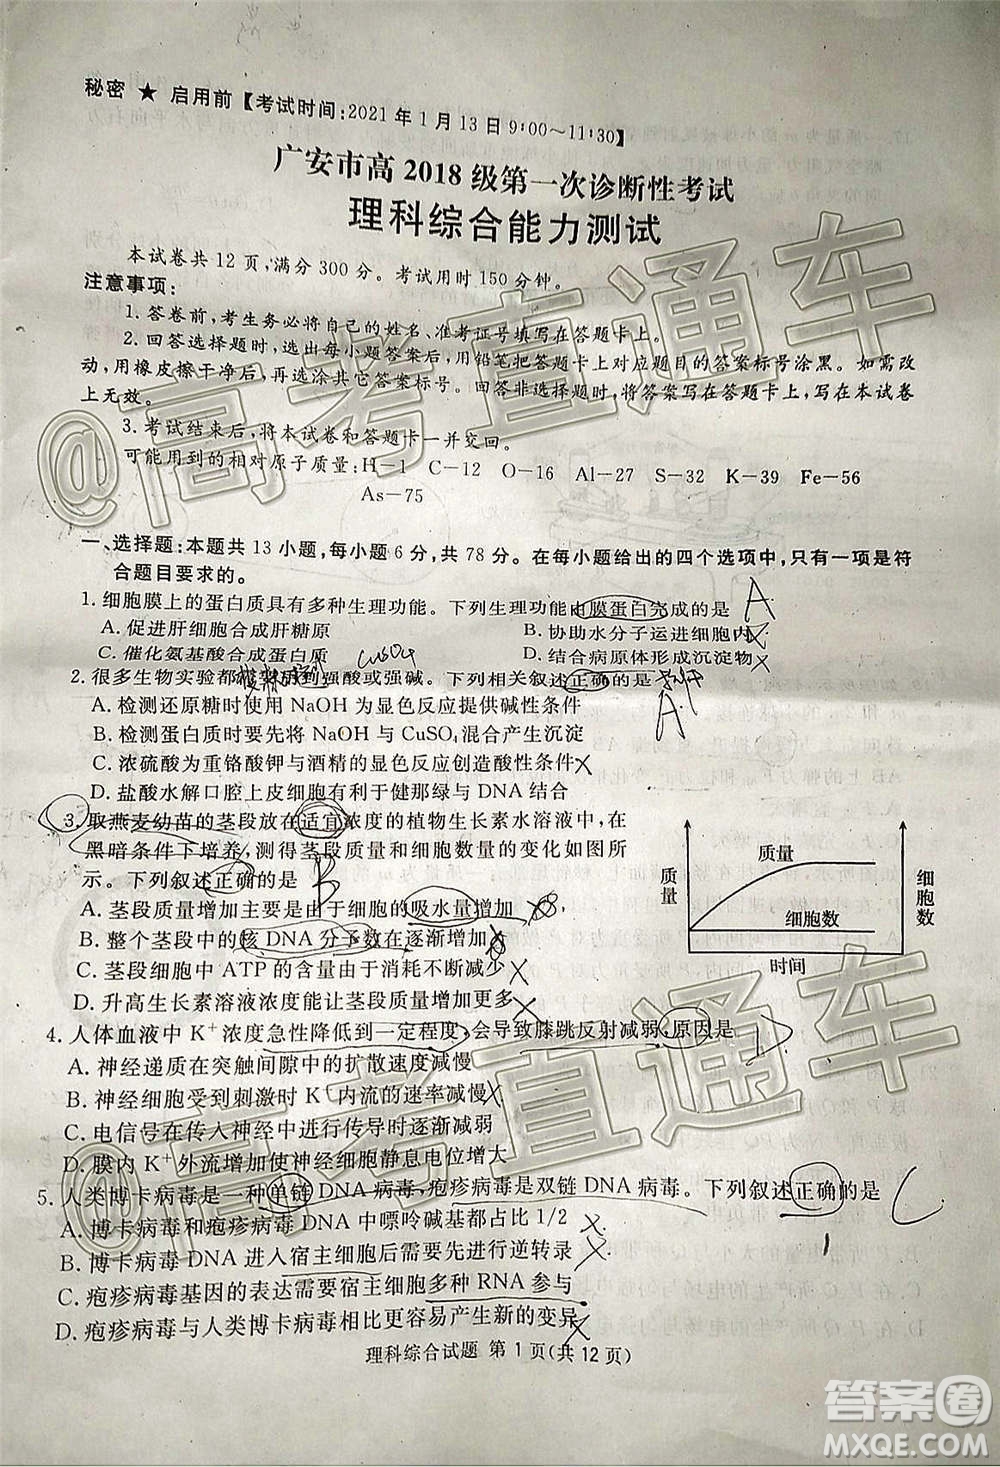 秘密 ★ 启用前【考试时间:2021年1月13日9:00~11:30】
广安市高2018级第一次诊断性考试
理科综合能力测试
本试卷共12页,满分300分。考试用时150分钟。
注意事项:
1. 答卷前,考生务必将自己的姓名、准考证号填写在答题卡上。
2. 回答选择题时,选出每小题答案后,用铅笔把答题卡上对应题目的答案标号涂黑。如需改
动,用橡皮擦干净后,再选涂其它答案标号。回答非选择题时,将答案写在答题卡上,写在本试卷
上无效。
3. 考试结束后,将本试卷和答题卡一并交回。
可能用到的相对原子质量:H-1 C-12 O-16 Al-27 S-32 K-39 Fe-56
As-75
一、选择题:本题共13小题,每小题6分,共78分。在每小题给出的四个选项中,只有一项是符
合题目要求的。
1. 细胞膜上的蛋白质具有多种生理功能。下列生理功能由膜蛋白完成的是 A
A. 促进肝细胞合成肝糖原 B. 协助水分子运进细胞内
C. 催化氨基酸合成蛋白质 D. 结合病原体形成沉淀物
CuSO4
2. 很多生物实验都要用到强酸或强碱。下列相关叙述正确的是
A
A. 检测还原糖时使用NaOH为显色反应提供碱性条件
B. 检测蛋白质时要先将NaOH与CuSO4混合产生沉淀
C. 浓硫酸为重铬酸钾与酒精的显色反应创造酸性条件
D. 盐酸水解口腔上皮细胞有利于健那绿与DNA结合
3. 取燕麦幼苗的茎段放在适宜浓度的植物生长素水溶液中,在
黑暗条件下培养,测得茎段质量和细胞数量的变化如图所
示。下列叙述正确的是 B
A. 茎段质量增加主要是由于细胞的吸水量增加
B. 整个茎段中的核DNA分子数在逐渐增加
C. 茎段细胞中ATP的含量由于消耗不断减少
D. 升高生长素溶液浓度能让茎段质量增加更多
质量
质量
细胞数
细胞数
时间
4. 人体血液中K+浓度急性降低到一定程度,会导致膝跳反射减弱,原因是 D
A. 神经递质在突触间隙中的扩散速度减慢
B. 神经细胞受到刺激时K+内流的速率减慢
C. 电信号在传入神经中进行传导时逐渐减弱
D. 膜内K+外流增加使神经细胞静息电位增大
5. 人类博卡病毒是一种单链DNA病毒,疱疹病毒是双链DNA病毒。下列叙述正确的是 C
A. 博卡病毒和疱疹病毒DNA中嘌呤碱基都占比1/2
B. 博卡病毒DNA进入宿主细胞后需要先进行逆转录
C. 疱疹病毒基因的表达需要宿主细胞多种RNA参与
D. 疱疹病毒与人类博卡病毒相比更容易产生新的变异
理科综合试题 第1页(共12页)
@高考直通车
@高考直通车
答案圈
MXQE.COM